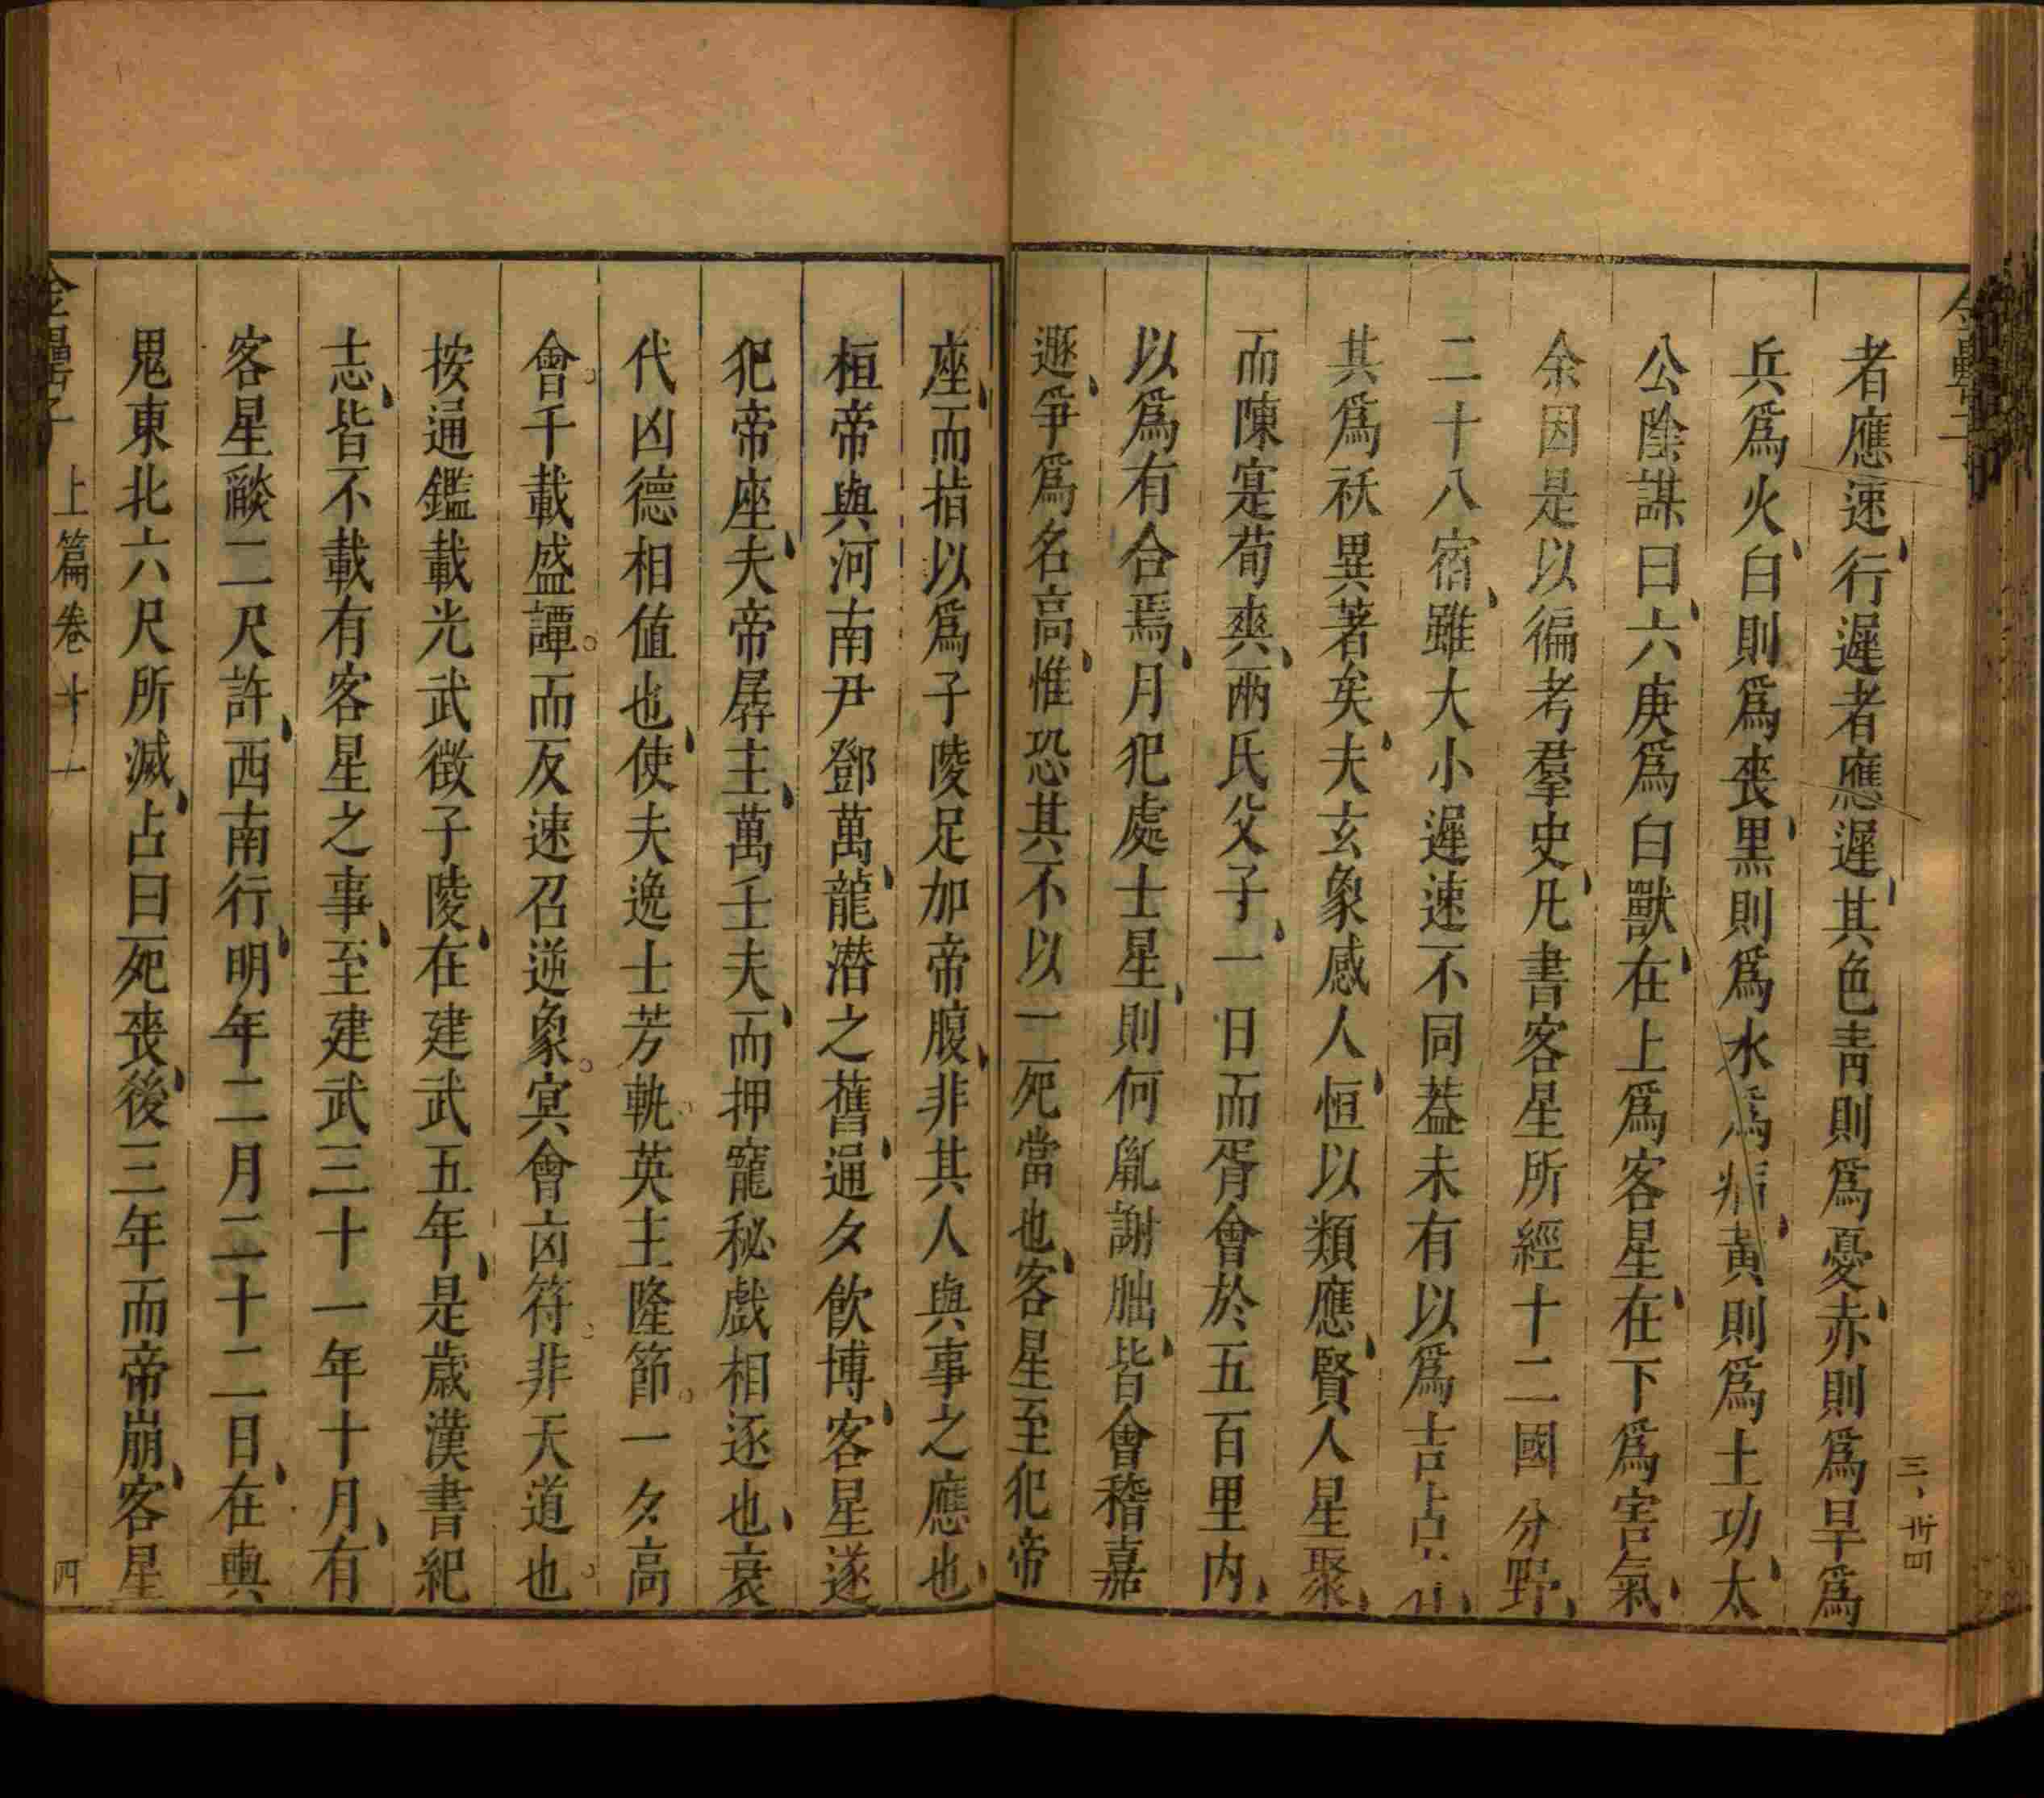 者應速行遲者應遲其色青則爲憂赤則爲旱爲
兵爲火白則爲喪黑則爲水爲病黃則爲土功太
公陰謀曰六庚爲白獸在上爲客星在下爲害氣
余因是以徧考羣史凡書客星所經十二國分野
二十八宿雖大小遲速不同葢未有以爲吉占
其爲祅異著矣夫玄象感人恒以類應賢人星聚
而陳寔荀爽兩氏父子一日而胥會於五百里內
以爲有合焉月犯處士星則何胤謝朏皆會稽嘉
遯爭爲名高惟恐其不以一死當也客星至犯帝
座而指以爲子陵足加帝腹非其人與事之應也
桓帝與河南尹鄧萬龍潛之舊通夕飲博客星遂
犯帝座夫帝孱主萬壬夫而押寵秘戲相逐也衰
代凶德相值也使夫逸士芳軌英主隆節一夕高
會千載盛譚而反速召逆象冥會凶符非天道也
按通鑑載光武徵子陵在建武五年是歲漢書紀
志皆不載有客星之事至建武三十一年十月有
客星燄二尺許西南行明年二月二十二日在輿
鬼東北六尺所滅占曰死喪後三年而帝崩客星
金罍子 上篇卷十一 四
三、卅四